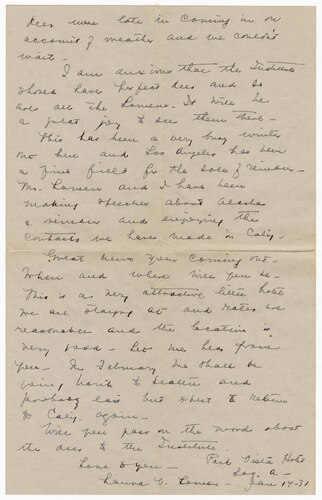 deer were late in coming in on
account of weather and we couldn't
wait.
I am anxious that the Institute
should have perfect deer and so
are all the Lomens. It will be
a great joy to see them there -
This has been a very busy winter
no here and Los Angeles has been
a fine field for the sale of reindeer -
Mr. Lomen and I have been
making speeches about Alaska
& reindeer and enjoying the
contacts we have made in Calif.
Great news your coming out.
When and where will you be -
This is a very attractive little hotel
we are staying at and rates are
reasonable and the location is
very good - Let me hear from
you - In February we shall be
going north to Seattle and
probably east but expect to return
to Calif. again -
Will you pass on the word about
the deer to the Institute.
Love to you - Park Vista Hotel
Los. A -
Laura V. Lomen - Jan 17-31